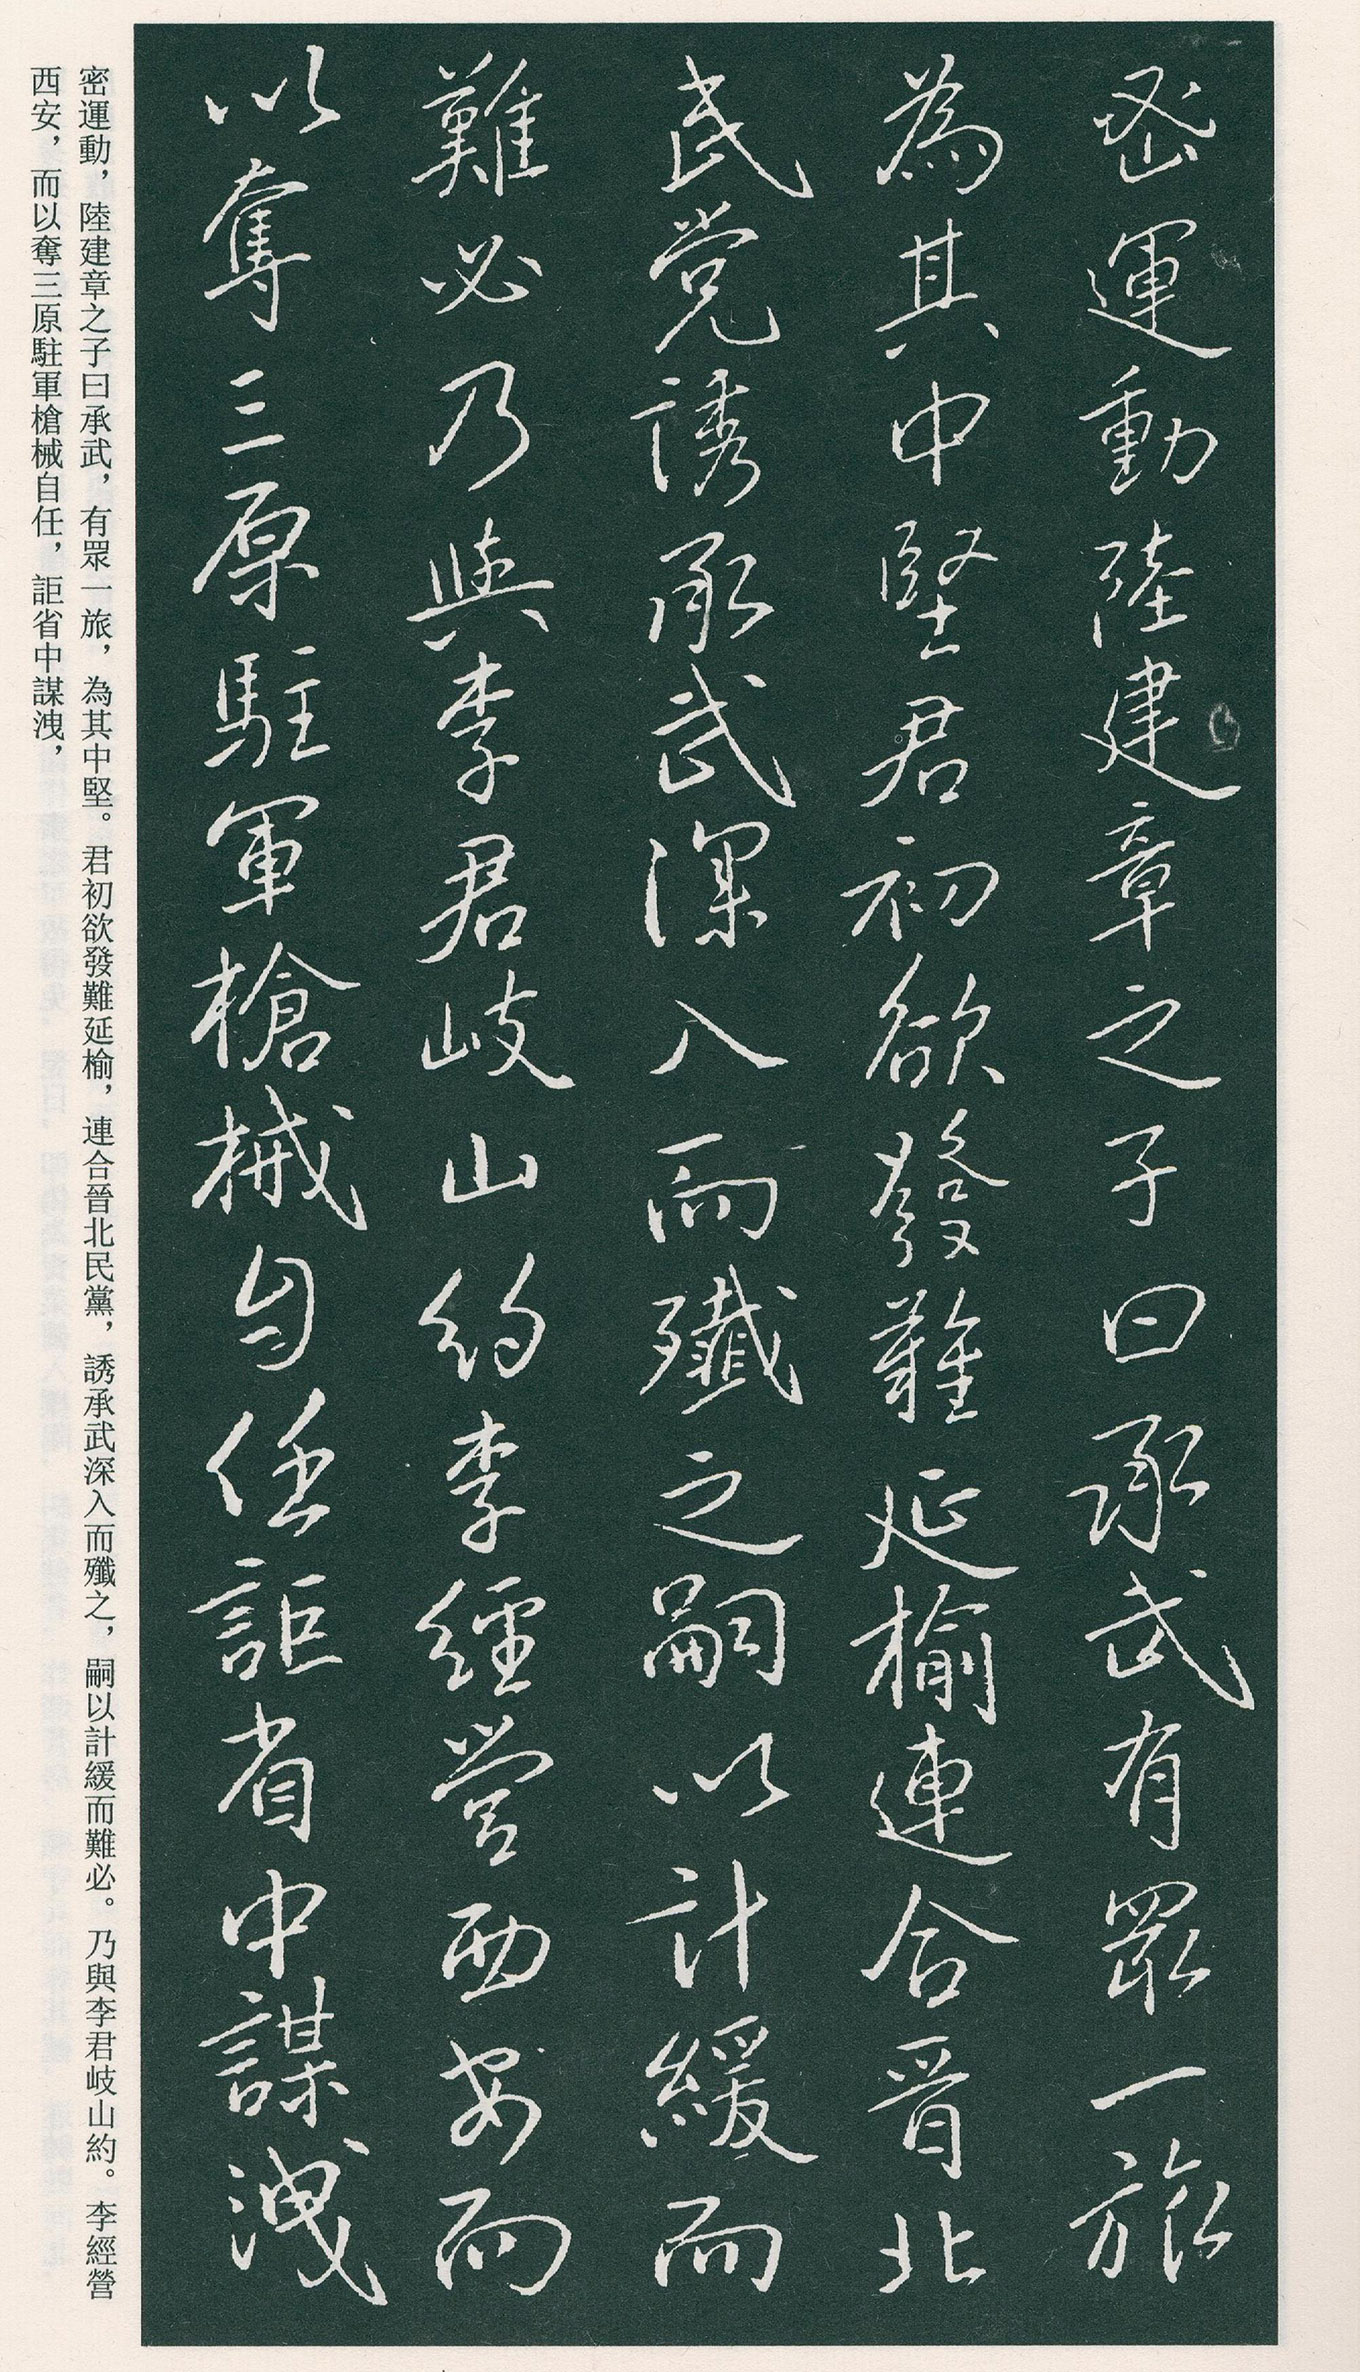 密運動陸建章之子曰承武有眾一旅
為其中堅君初欲發難延榆連合晉北
民党誘承武深入而殲之嗣以計緩而
難必乃與李君岐山約李經營西安而
以奪三原駐軍槍械自任詎省中謀洩
密運動，陸建章之子曰承武，有眾一旅，為其中堅。君初欲發難延榆，連合晉北民黨，誘承武深入而殲之，嗣以計緩而難必。乃與李君岐山約。李經營
西安，而以奪三原駐軍槍械自任，詎省中謀洩，